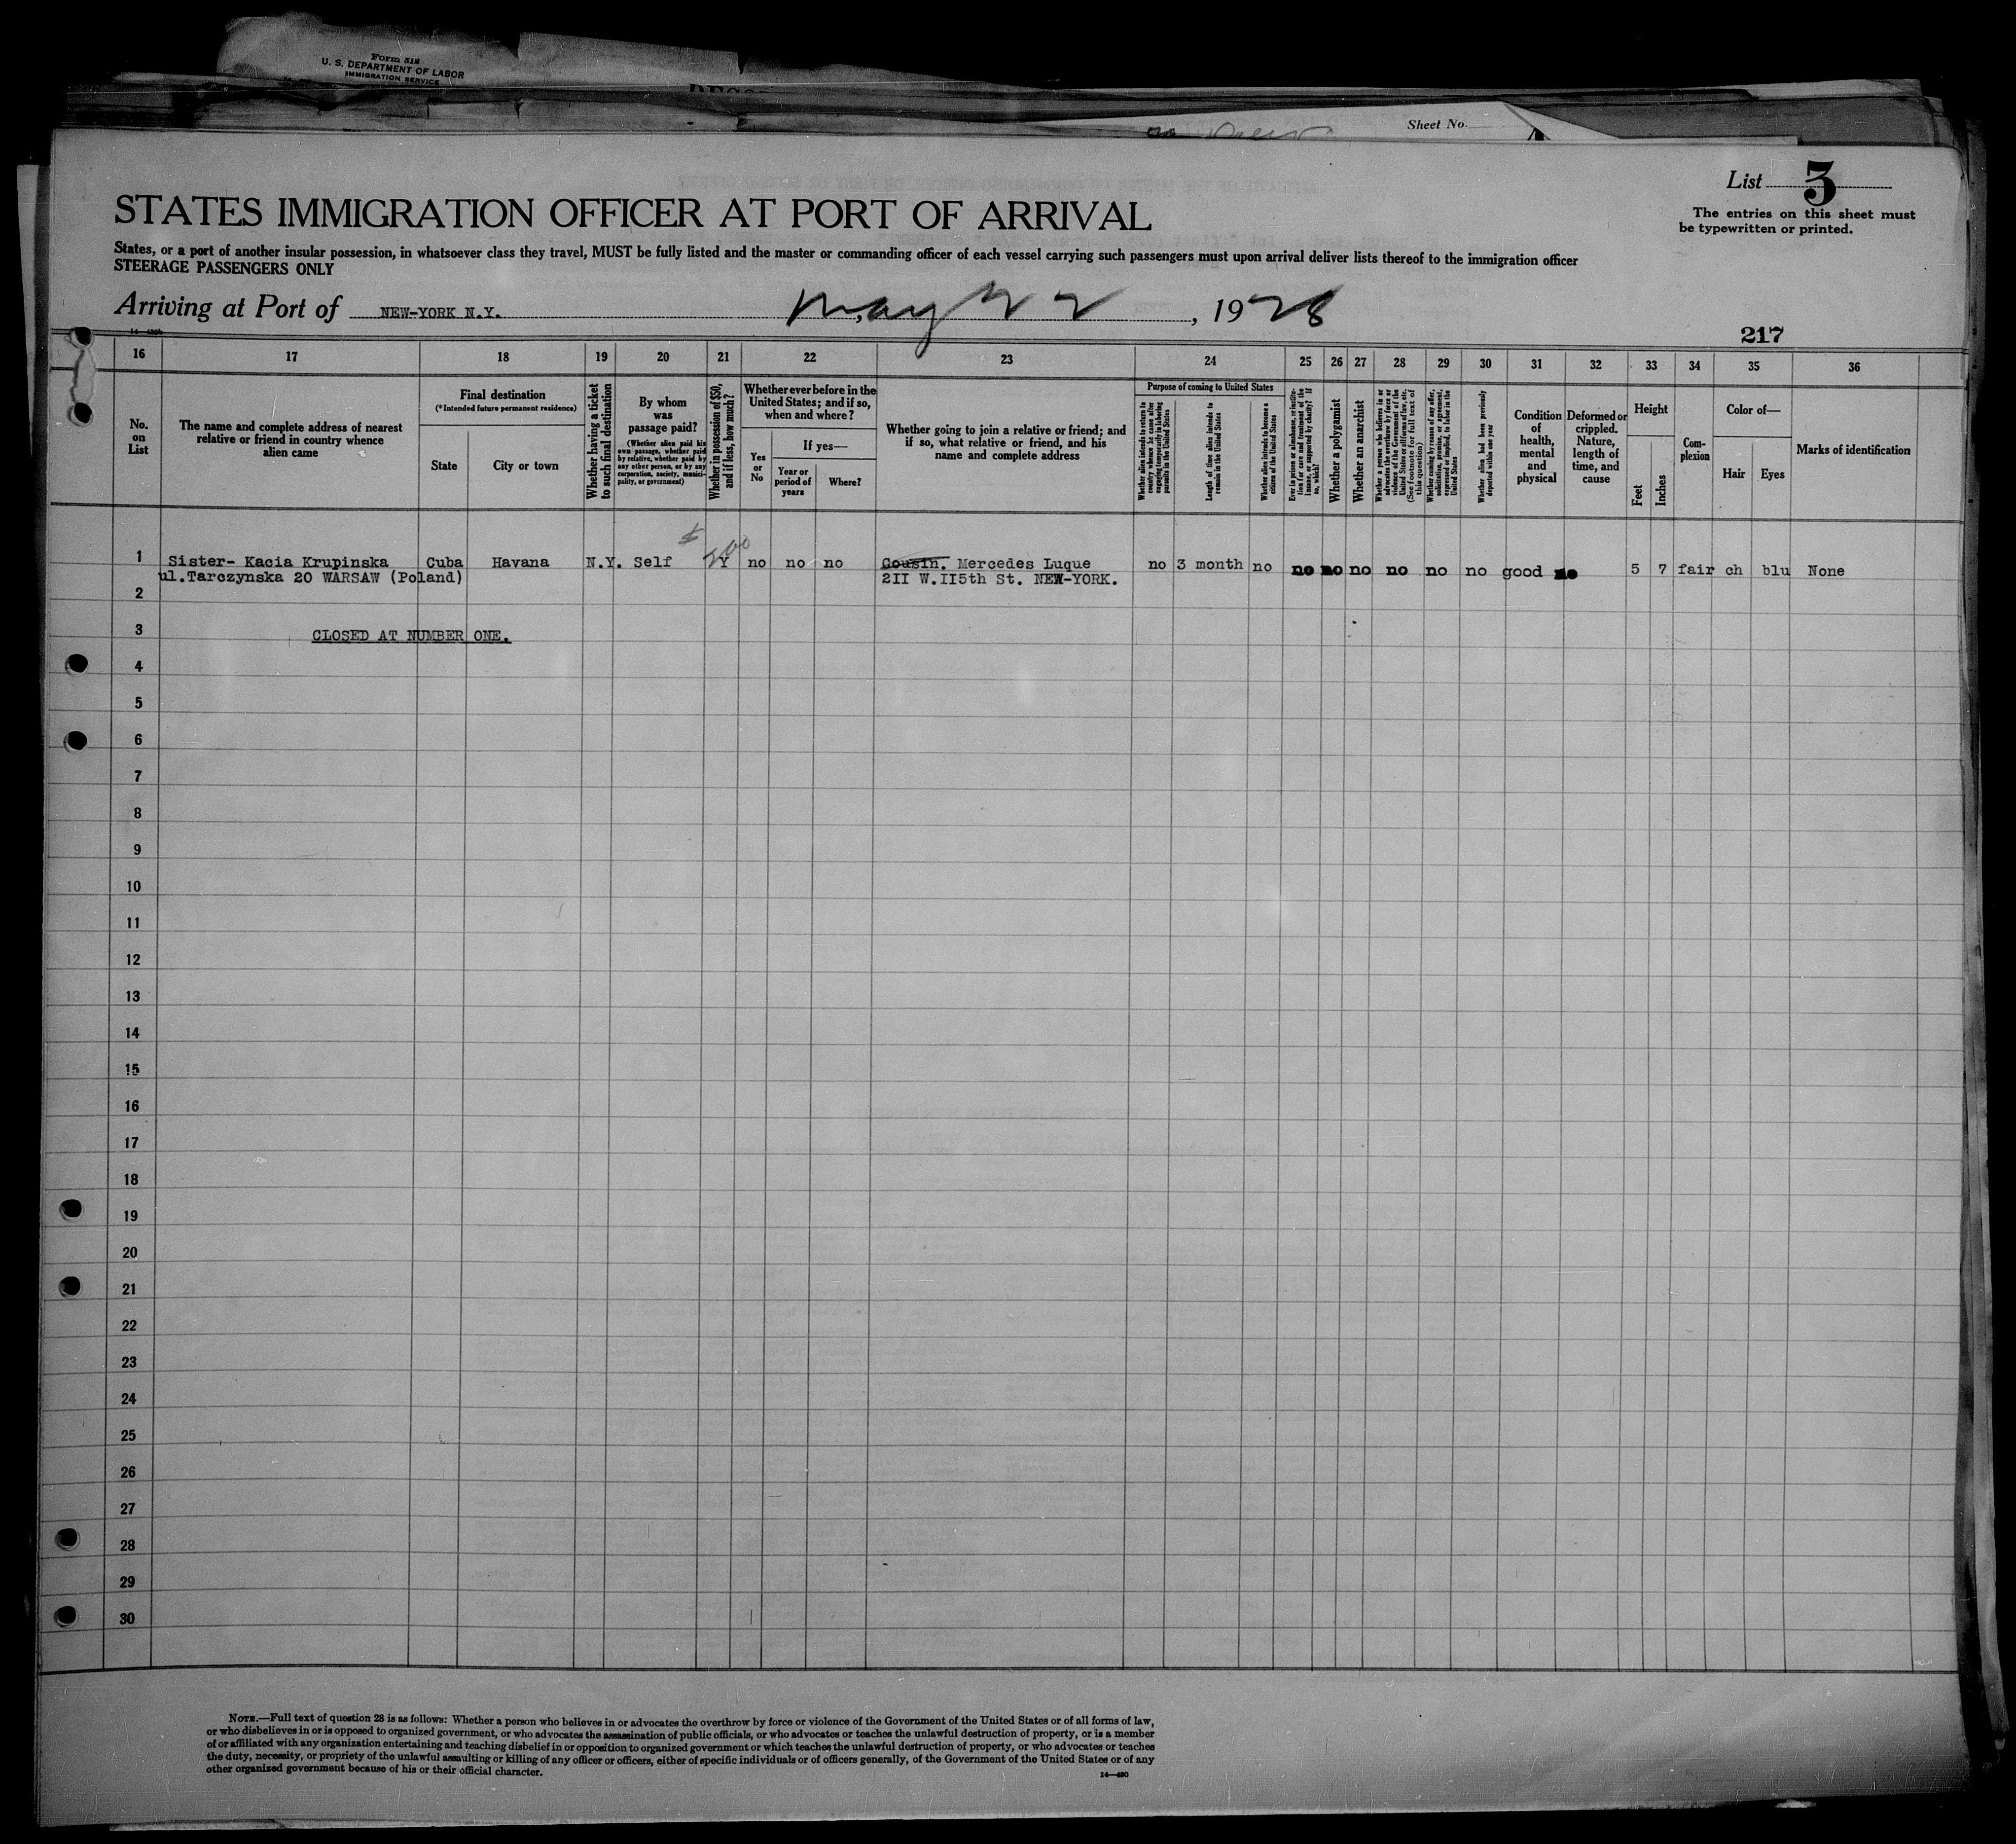 Form 518
U. S. DEPARTMENT OF LABOR
IMMIGRATION SERVICE
Sheet No.
List 3
The entries on this sheet must
be typewritten or printed.
STATES IMMIGRATION OFFICER AT PORT OF ARRIVAL
States, or a port of another insular possession, in whatsoever class they travel, MUST be fully listed and the master or commanding officer of each vessel carrying such passengers must upon arrival deliver lists thereof to the immigration officer
STEERAGE PASSENGERS ONLY
Arriving at Port of NEW-YORK N.Y. May 22, 1928
217
16 17 18 19 20 21 22 23 24 25 26 27 28 29 30 31 32 33 34 35 36
No. on List
The name and complete address of nearest relative or friend in country whence alien came
Final destination
(*Intended future permanent residence)
State
City or town
Whether having a ticket to such final destination
By whom was passage paid?
(Whether alien paid his own passage, whether paid by relative, whether paid by any other person, or by any corporation, society, municipality, or government)
Whether in possession of $50, and if less, how much?
Whether ever before in the United States; and if so, when and where?
Yes or No
If yes—
Year or period of years
Where?
Whether going to join a relative or friend; and if so, what relative or friend, and his name and complete address
Purpose of coming to United States
Whether alien intends to return to country whence he came after engaging temporarily in laboring pursuits in the United States
Length of time alien intends to remain in the United States
Whether alien intends to become a citizen of the United States
Ever in prison or almshouse, or institution for care and treatment of the insane, or supported by charity? If so, which?
Whether a polygamist
Whether an anarchist
Whether a person who believes in or advocates the overthrow by force or violence of the Government of the United States or all forms of law, etc. (See footnote for full text of this question)
Whether coming by reason of any offer, solicitation, promise, or agreement, expressed or implied, to labor in the United States
Whether alien had been previously deported within one year
Condition of health, mental and physical
Deformed or crippled. Nature, length of time, and cause
Height
Feet
Inches
Complexion
Color of—
Hair
Eyes
Marks of identification
1 Sister- Kacia Krupinska Cuba Havana N.Y. Self $ 200 Y no no no Cousin. Mercedes Luque no 3 month no no no no no no no good no 5 7 fair ch blu None
ul.Tarczynska 20 WARSAW (Poland) 2II W.II5th St. NEW-YORK.
2
3 CLOSED AT NUMBER ONE.
4
5
6
7
8
9
10
11
12
13
14
15
16
17
18
19
20
21
22
23
24
25
26
27
28
29
30
NOTE.—Full text of question 28 is as follows: Whether a person who believes in or advocates the overthrow by force or violence of the Government of the United States or of all forms of law,
or who disbelieves in or is opposed to organized government, or who advocates the assassination of public officials, or who advocates or teaches the unlawful destruction of property, or is a member
of or affiliated with any organization entertaining and teaching disbelief in or opposition to organized government or which teaches the unlawful destruction of property, or who advocates or teaches
the duty, necessity, or propriety of the unlawful assaulting or killing of any officer or officers, either of specific individuals or of officers generally, of the Government of the United States or of any
other organized government because of his or their official character.
14—430